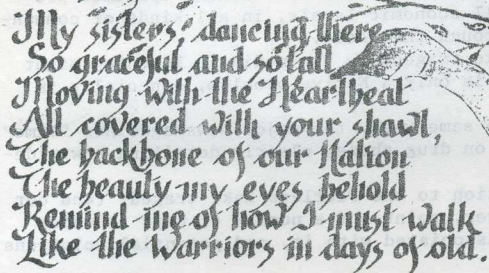 My sisters dancing there
So graceful and so tall
Moving with the Heartbeat
All covered with your shawl
The backbone of our Nation
The beauty my eyes behold
Remind me of how I must walk
Like the Warriors in days of old.